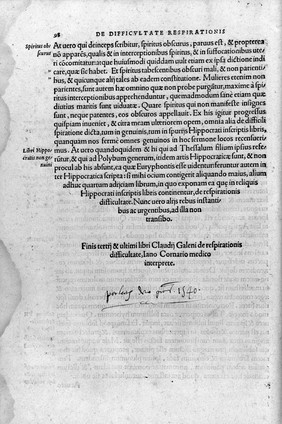 98 DE DIFFICVLTATE RESPIRATIONIS
Spiritus obscurus
At uero qui deinceps scribitur, spiritus obscurus, paruus est, & propterea
nō apparēs, qualis & in interceptionibus spiritus, & in suffocationibus uteri
cōcomitatur: atque huiusmodi quiddam uult etiam ex ipsa dictione indi
care, quæ sic habet. Et spiritus tabescentibus obscuri mali, & non parienti/
bus, & quicunque alij tales ab eadem constitutione. Mulieres etenim non
parientes, sunt autem hæ omnino quæ non probe purgātur, maxime à spi/
ritus interceptionibus apprehenduntur, quemadmodum sane etiam quæ
diutius maritis sunt uiduatæ. Quare spiritus qui non manifeste insignes
sunt, neque patentes, eos obscuros appellauit. Ex his igitur progressus
quispiam inueniet, & circa meam uteriorem opem, omnia alia de difficili
spiratione dicta, tum in genuinis, tum in spurijs Hippocrati inscriptis libris,
quanquam nos ferme omnes genuinos in hoc sermone locos recensueri/
Libri Hippocratis non genuini
mus. At uero quandoquidem & hi qui ad Thessalum filium ipsius refe/
rūtur, & qui ad Polybum generum, itidem artis Hippocraticæ sunt, & non
procul ab his absunt, ea quæ Euryphontis esse uidentur feruntur autem in
ter Hippocratica scripta: si mihi ocium contigerit aliquando maius, alium
adhuc quartum adrijciam librum, in quo exponam ea quæ in reliquis
Hippocrati inscriptis libris continentur, de respirationis
difficultate. Nunc uero alijs rebus instanti/
bus ac urgentibus, ad illa non
transibo.
Finis tertij & ultimi libri Claudij Galeni de respirationis
difficultate, Iano Cornario medico
interprete.
1540.